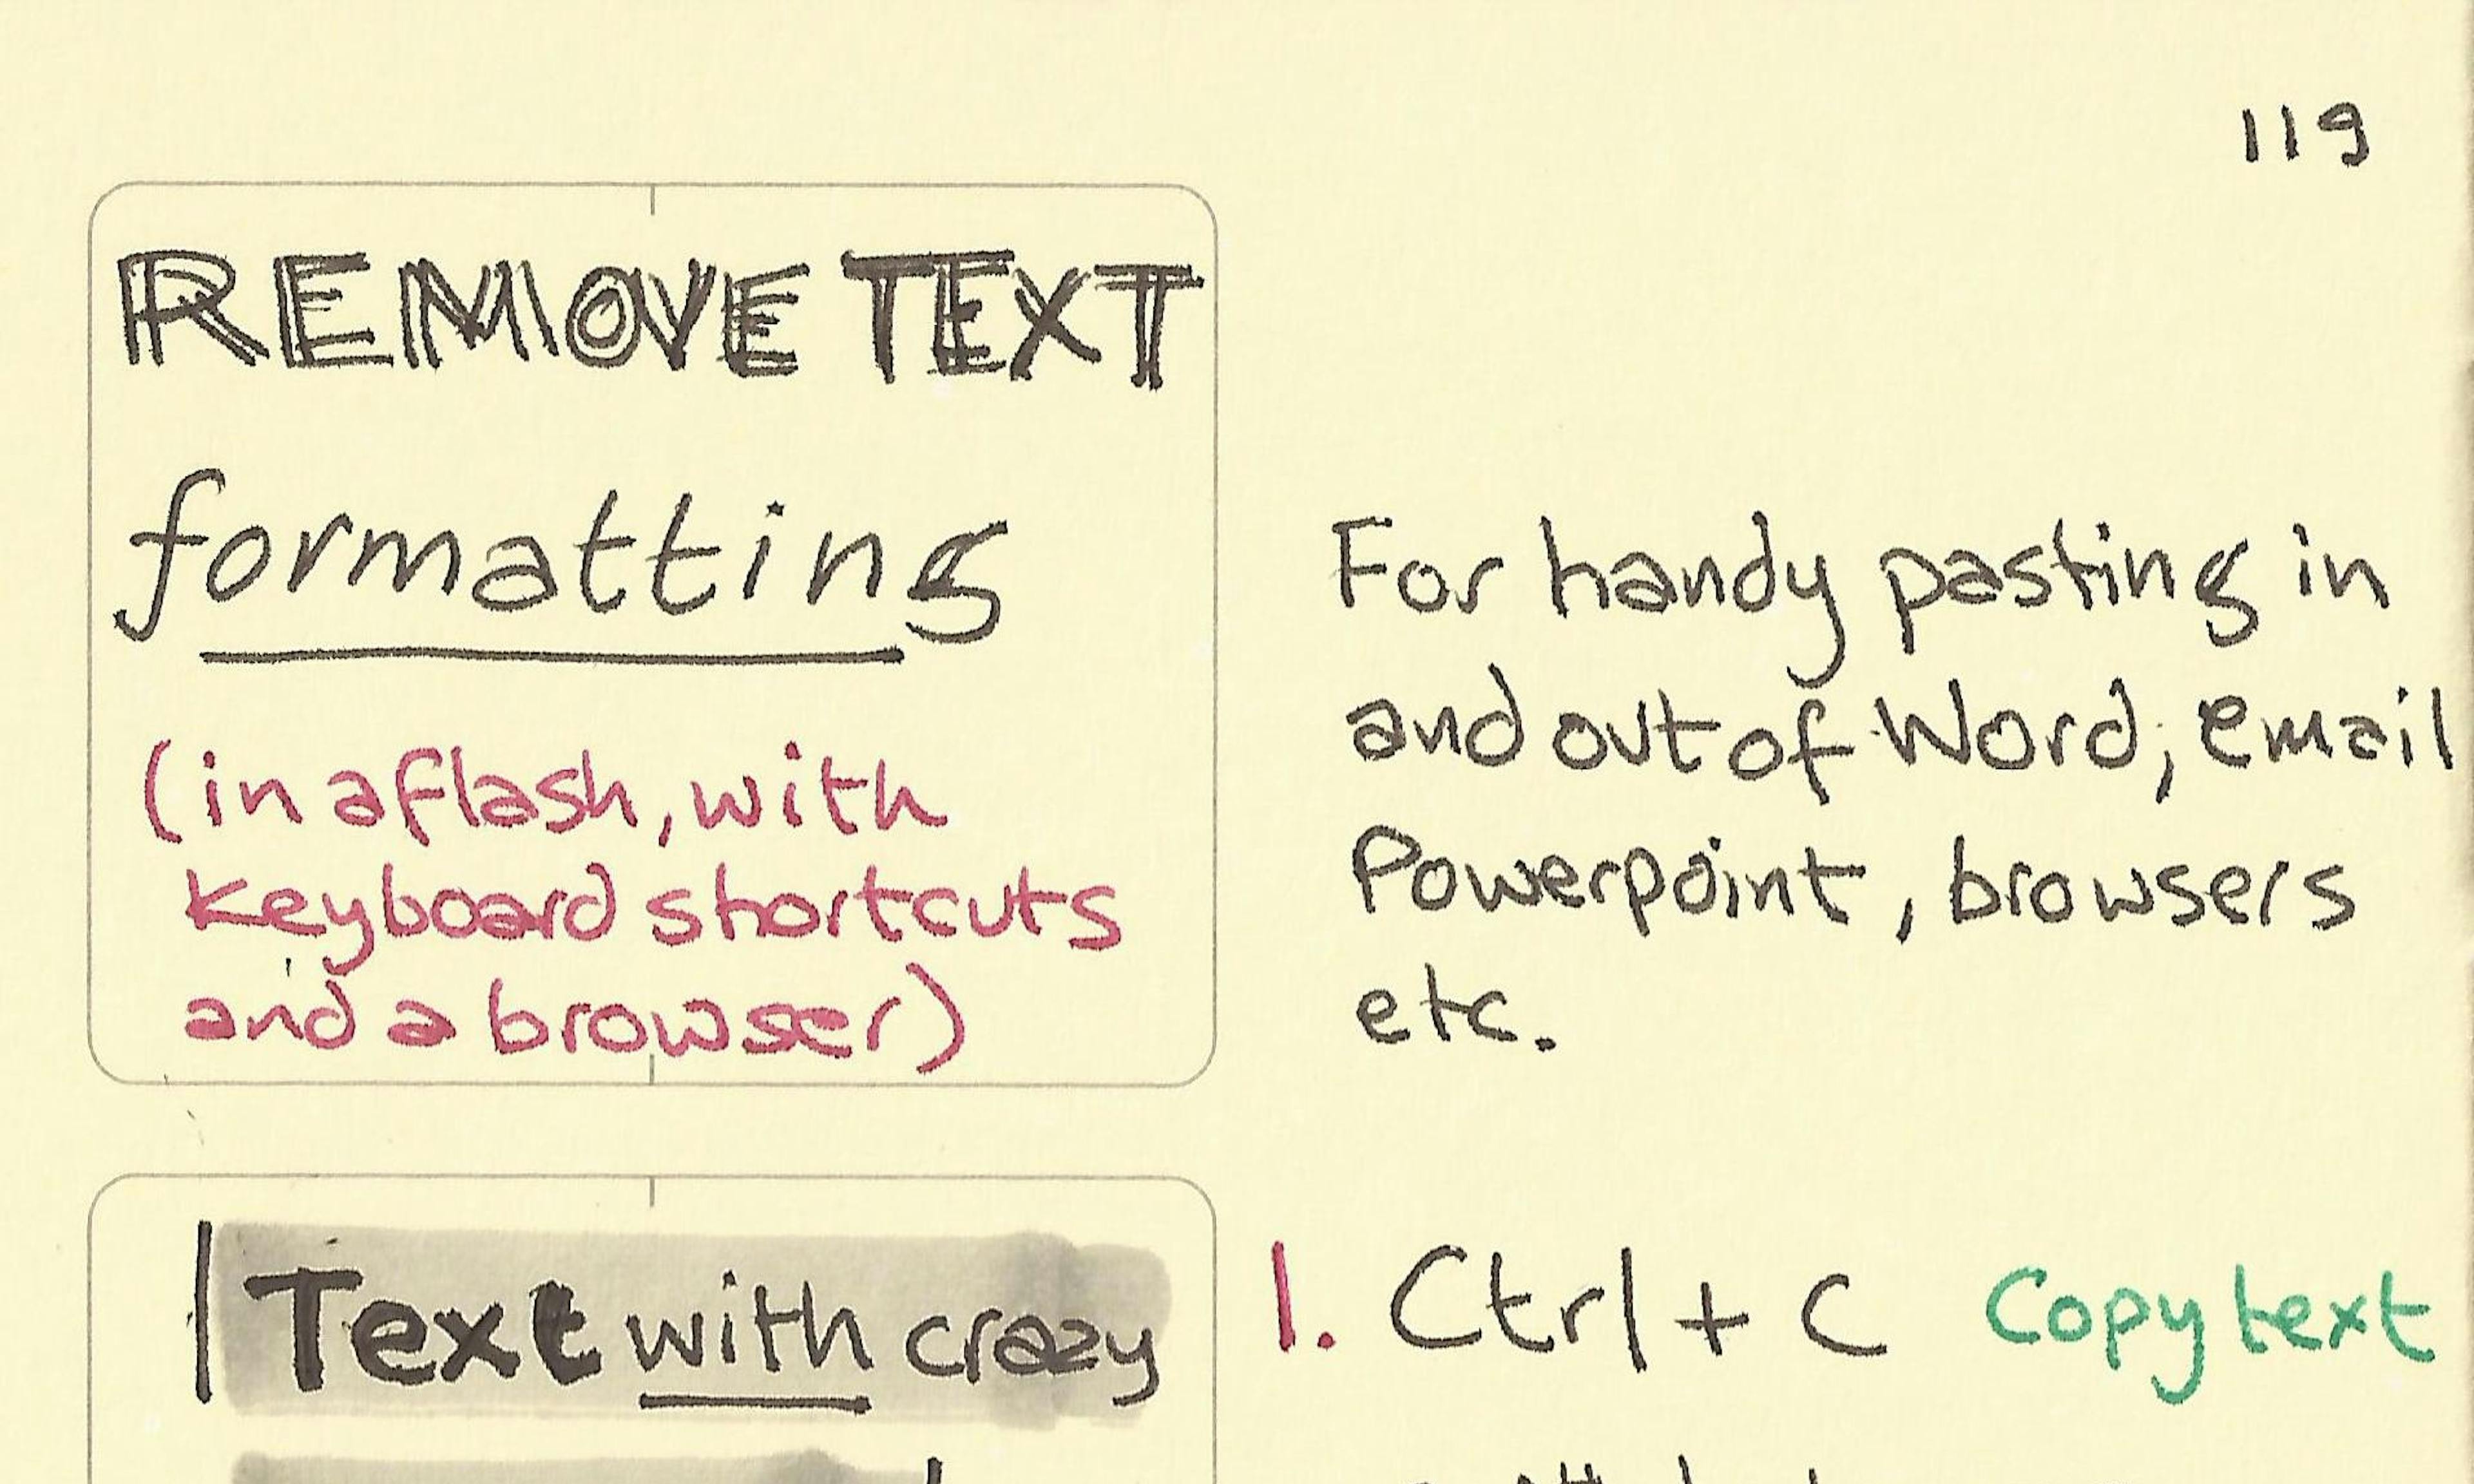 119
REMOVE TEXT
formatting
(in a flash, with
keyboard shortcuts
and a browser)
For handy pasting in
and out of Word, email
Powerpoint, browsers
etc.
Text with crazy
1. Ctrl + C Copy text